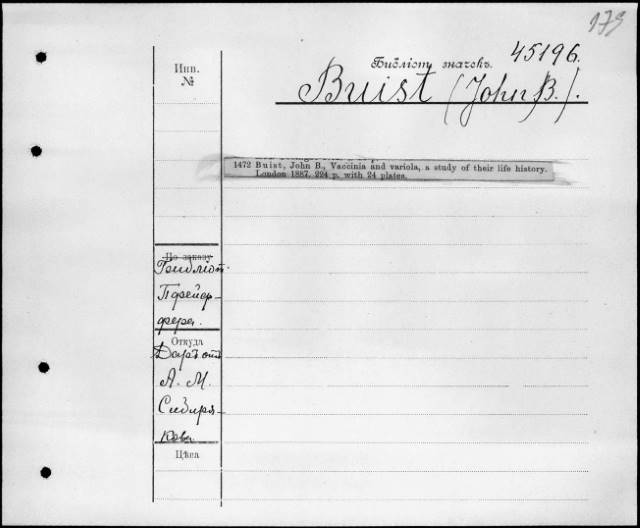 173
45196.
Библіот. значекъ.
Инв.
№
Buist (John B.).
1472 Buist, John B., Vaccinia and variola, a study of their life history.
London 1887. 224 p. with 24 plates.
По заказу
Библіот.
Пфейф-
фера.
Откуда
Даръ отъ
А. М.
Сибиря-
кова
Цѣна